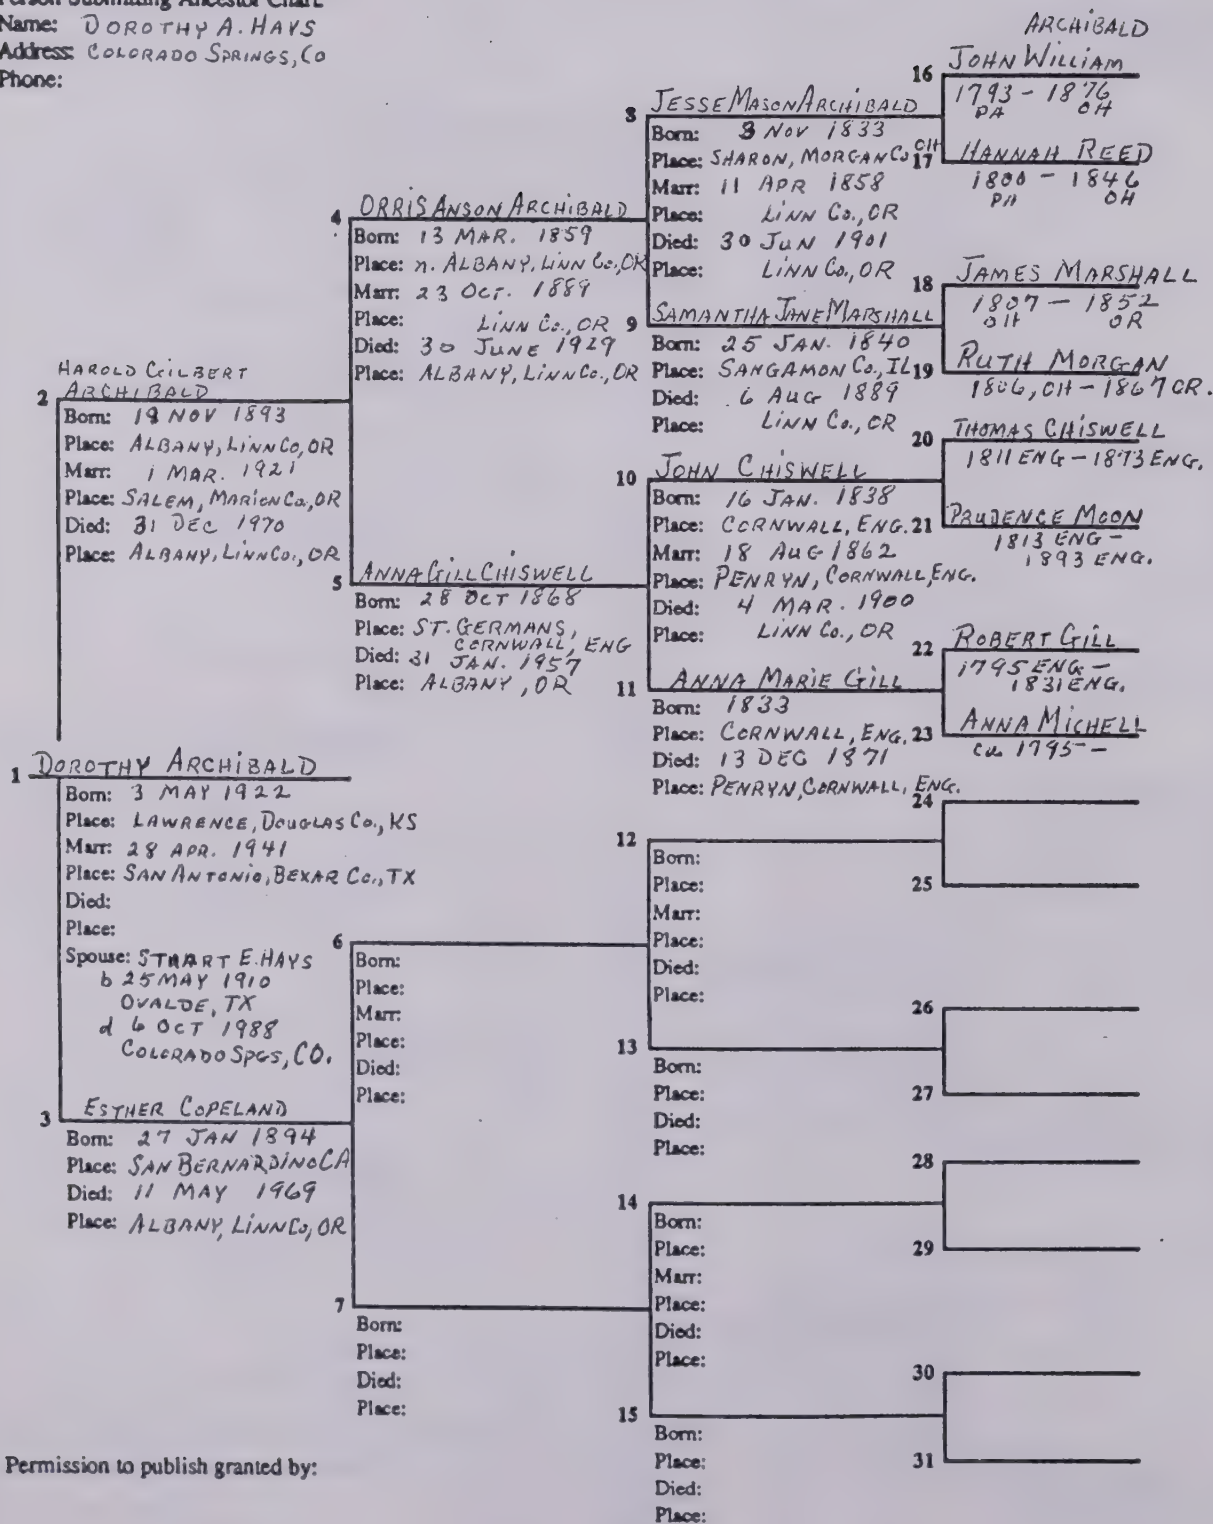 Person Submitting Ancestor Chart
Name: DOROTHY A. HAYS
Address: COLORADO SPRINGS, CO
Phone:
1 DOROTHY ARCHIBALD
Born: 3 MAY 1922
Place: LAWRENCE, DOUGLAS Co., KS
Marr: 28 APR. 1941
Place: SAN ANTONIO, BEXAR Co., TX
Died:
Place:
Spouse: STUART E. HAYS
b 25 MAY 1910
OVALDE, TX
d 6 OCT 1988
COLORADO SPGS, CO.
2 HAROLD GILBERT
ARCHIBALD
Born: 19 NOV 1893
Place: ALBANY, LINN Co, OR
Marr: 1 MAR. 1921
Place: SALEM, MARION Co., OR
Died: 31 DEC 1970
Place: ALBANY, LINN Co., OR
3 ESTHER COPELAND
Born: 27 JAN 1894
Place: SAN BERNARDINO CA
Died: 11 MAY 1969
Place: ALBANY, LINN Co, OR
4 ORRIS ANSON ARCHIBALD
Born: 13 MAR. 1859
Place: n. ALBANY, LINN Co., OR
Marr: 23 OCT. 1889
Place: LINN Co., OR
Died: 30 JUNE 1929
Place: ALBANY, LINN Co., OR
5 ANNA GILL CHISWELL
Born: 28 OCT 1868
Place: ST. GERMANS,
CORNWALL, ENG
Died: 31 JAN. 1957
Place: ALBANY, OR
6
Born:
Place:
Marr:
Place:
Died:
Place:
7
Born:
Place:
Died:
Place:
8 JESSE MASON ARCHIBALD
Born: 3 NOV 1833
Place: SHARON, MORGAN Co OH
Marr: 11 APR 1858
Place: LINN Co., OR
Died: 30 JUN 1901
Place: LINN Co., OR
9 SAMANTHA JANE MARSHALL
Born: 25 JAN. 1840
Place: SANGAMON Co., IL
Died: 6 AUG 1889
Place: LINN Co., OR
10 JOHN CHISWELL
Born: 16 JAN. 1838
Place: CORNWALL, ENG.
Marr: 18 AUG 1862
Place: PENRYN, CORNWALL, ENG.
Died: 4 MAR. 1900
Place: LINN Co., OR
11 ANNA MARIE GILL
Born: 1833
Place: CORNWALL, ENG.
Died: 13 DEC 1871
Place: PENRYN, CORNWALL, ENG.
12
Born:
Place:
Marr:
Place:
Died:
Place:
13
Born:
Place:
Died:
Place:
14
Born:
Place:
Marr:
Place:
Died:
Place:
15
Born:
Place:
Died:
Place:
ARCHIBALD
16 JOHN WILLIAM
1793 - 1876
PA OH
17 HANNAH REED
1800 - 1846
PA OH
18 JAMES MARSHALL
1807 - 1852
OH OR
19 RUTH MORGAN
1806, OH - 1867 OR.
20 THOMAS CHISWELL
1811 ENG - 1873 ENG.
21 PRUDENCE MOON
1813 ENG -
1893 ENG.
22 ROBERT GILL
1795 ENG -
1831 ENG.
23 ANNA MICHELL
ca 1795 -
24
25
26
27
28
29
30
31
Permission to publish granted by: